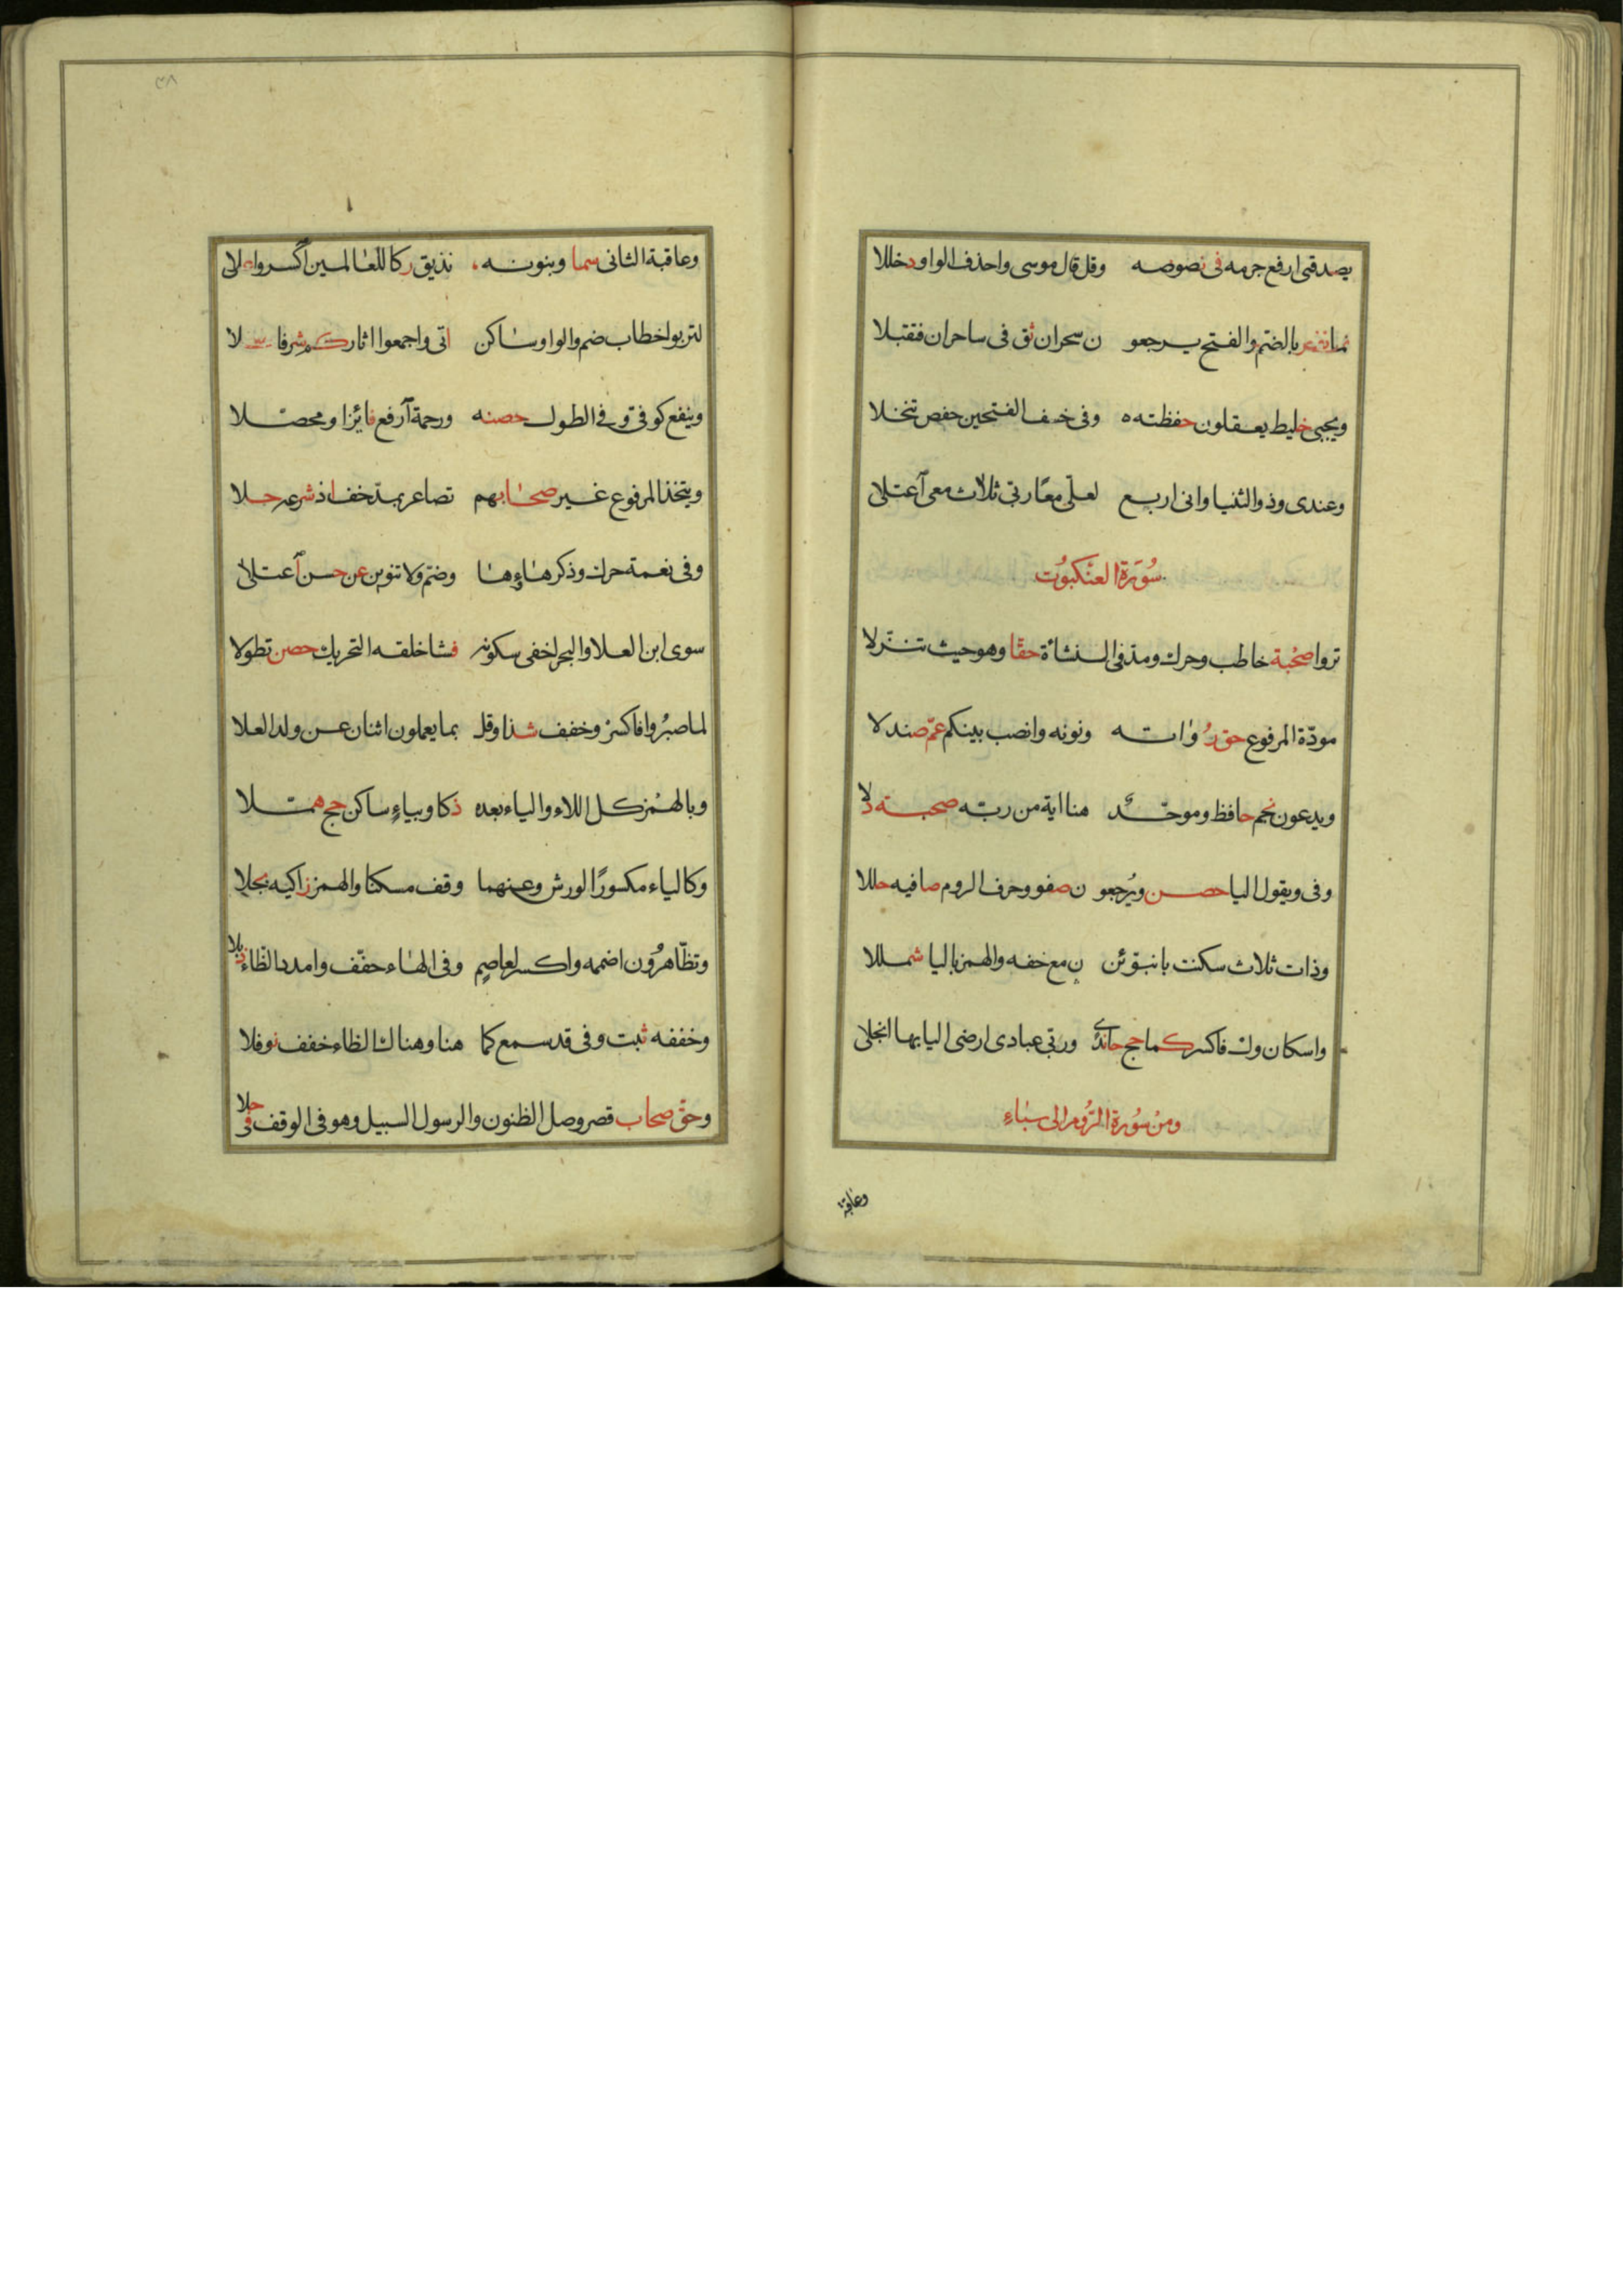 يصدقنى ارفع جزمه فى نصوصه وقل قال موسى واحذف الواو دخللا
نما نفر بالضم والفتح يرجعو ن سحران ثق فى ساحران فقبلا
ويجبى خليط يعقلون حفظته وفى خسف الفتحين حفص تنخلا
وعندى وذو الثنيا وانى اربع لعلّى معًا ربّى ثلاث معى آعتلى
سُورَة العنكبوُت
تروا صُحْبة خاطب وحرك ومد فى النشاءة حقّا وهو حيث تنزّلا
مودّة المرفوع حق رُواته ونونه وانصب بينكم عمّ صندلا
ويدعون نجم حافظ وموحّد هنا اية من ربّه صحبة دلا
وفى ويقول اليا حصن ويُرجعو ن صفو وحرف الروم صافيه حللا
وذات ثلاث سكنت بانبوّئن ن مع خفه والهمز باليا شمللا
واسكان ول فاكسر كما حج جاندى وربّى عبادى ارضى اليا بها انجلى
ومنْ سُورة الرُّوم الى سَباءٍ
وعاقبة
٣٨
وعاقبة الثانى سما وبنونه نذيق زكا للعالمين آكسروا علا
لتربوا خطاب ضم والواو ساكن اتى واجمعوا اثار كم شرفا علا
وينفع كوفىّ وفى الطول حصنه ورحمة آرفع فائزا ومحصّلا
ويتخذ المرفوع غير صحابهم تصاعر بمدّ خف اذ شرعه حلا
وفى نعمة حرك وذكر هاؤها وضمّ ولا تنوين عن حسن آعتلا
سوى ابن العلا والبحر اخفى سكونه فشا خلقه التحريك حصن تطولا
لما صبرُوا فاكسرْ وخفف شذا وقل بما يعملون اثنان عن ولد العلا
وبالهمْز كل اللاء والياء بعده ذكا وبياءٍ ساكن حج همّلا
وكالياء مكسورًا لورش وعنهما وقف مسكنا والهمز زاكيه بجلا
وتظّاهرُون اضممه واكسر لعاصم وفى الهاء خفّف وامدد الظّاء ذبلا
وخففه ثبت وفى قد سمع كما هنا وهناك الظاء خفف نوفلا
وحقّ صحاب قصر وصل الظنون والرسول السبيل وهو فى الوقف فى حلا